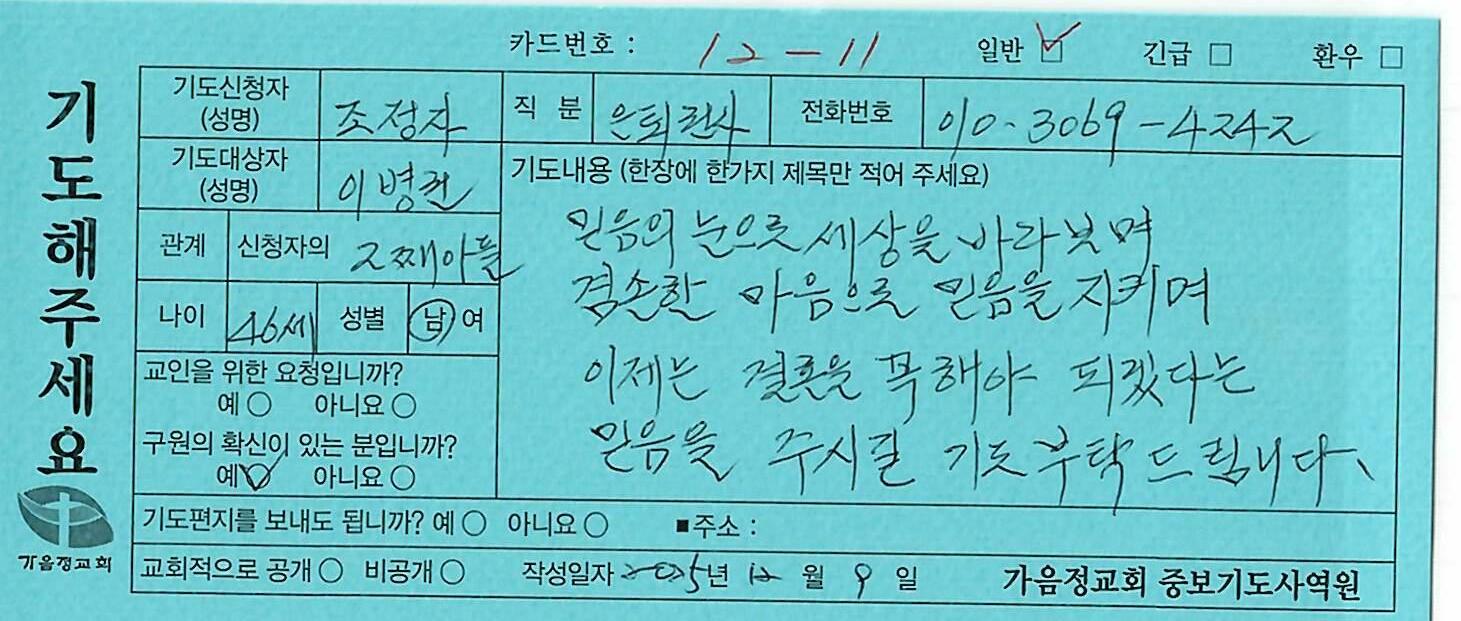 카드번호 : 12-11 일반 ☑ 긴급 □ 환우 □
기도해주세요
기도신청자 (성명) 조정자 직 분 은퇴권사 전화번호 010-3069-4242
기도대상자 (성명) 이병권
관계 신청자의 2째아들
나이 46세 성별 남 여
교인을 위한 요청입니까?
예 ○ 아니요 ○
구원의 확신이 있는 분입니까?
예 ☑ 아니요 ○
기도내용 (한장에 한가지 제목만 적어 주세요)
믿음의 눈으로 세상을 바라보며
겸손한 마음으로 믿음을 지키며
이제는 결혼을 꼭 해야 되겠다는
믿음을 주시길 기도 부탁드립니다.
기도편지를 보내도 됩니까? 예 ○ 아니요 ○ ■주소 :
교회적으로 공개 ○ 비공개 ○ 작성일자 2025년 12월 9일 가음정교회 중보기도사역원
가음정교회